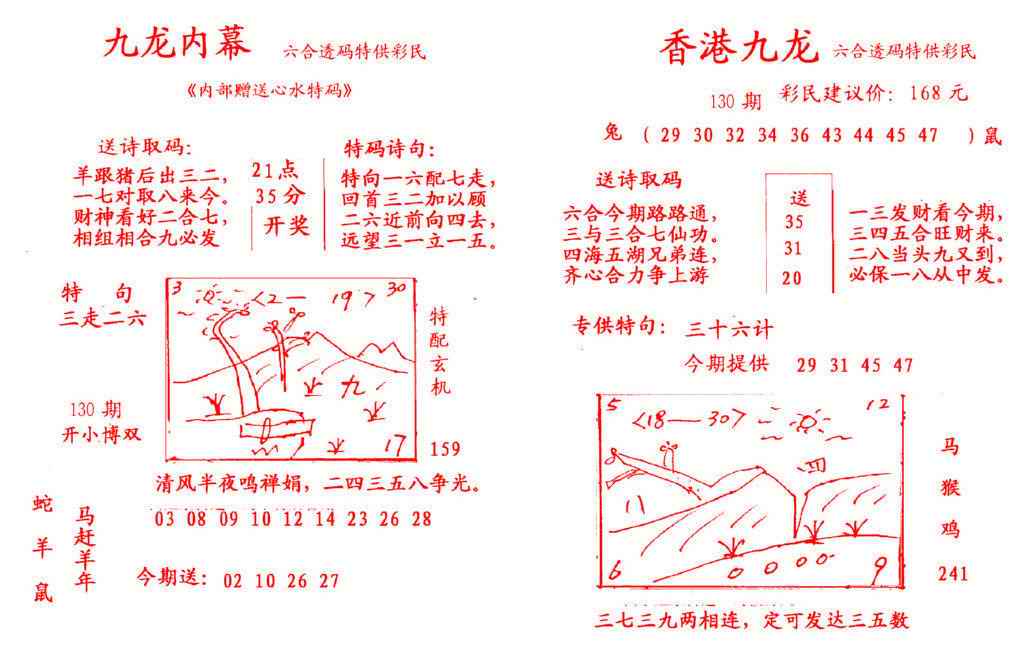 九龙内幕 六合透码特供彩民
《内部赠送心水特码》
送诗取码：
羊跟猪后出三二，
一七对取八来今。
财神看好二合七，
相组相合九必发
21点
35分
开奖
特码诗句：
特向一六配七走，
回首三二加以顾
二六近前向四去，
远望三一立一五。
特 句
三走二六
130期
开小博双
3
<2— 19>
30
九
17
特配玄机
159
清风半夜鸣禅娟，二四三五八争光。
03 08 09 10 12 14 23 26 28
蛇羊鼠
马赶羊年
今期送：02 10 26 27
香港九龙 六合透码特供彩民
130期 彩民建议价：168元
兔 （29 30 32 34 36 43 44 45 47 ）鼠
送诗取码
六合今期路路通，
三与三合七仙功。
四海五湖兄弟连，
齐心合力争上游
送
35
31
20
一三发财看今期，
三四五合旺财来。
二八当头九又到，
必保一八从中发。
专供特句：三十六计
今期提供 29 31 45 47
5
<18—30>
12
四
八
6
9
马
猴
鸡
241
三七三九两相连，定可发达三五数